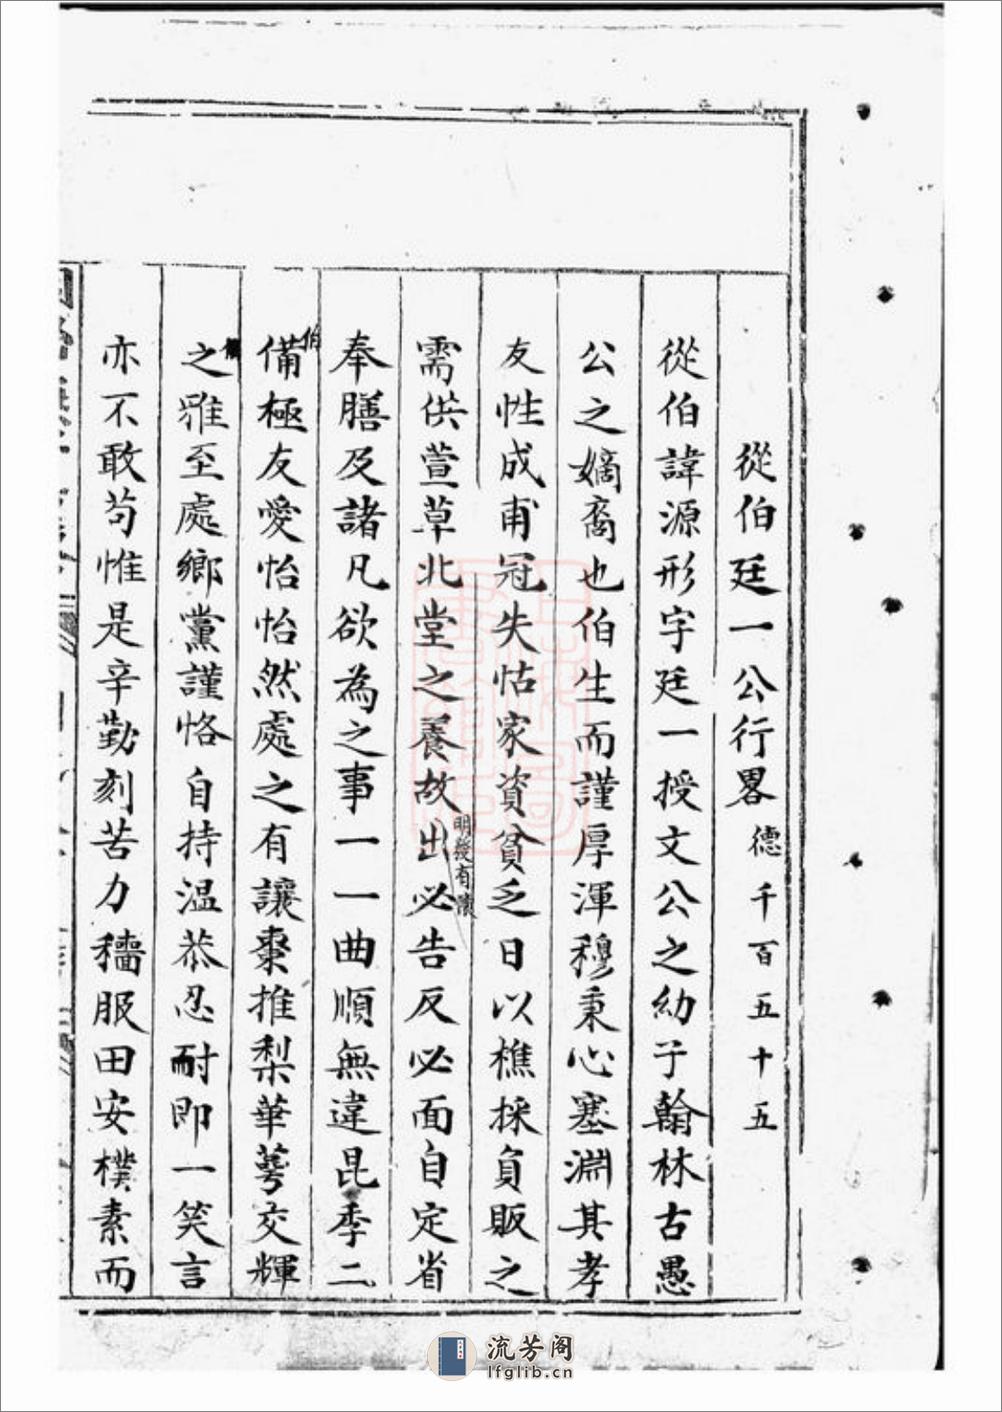 從伯廷一公行畧 德千百五十五
從伯諱源形字廷一授文公之幼子翰林古愚
公之嫡裔也伯生而謹厚渾穆秉心塞淵其孝
友性成甫冠失怙家資貧乏日以樵採負販之
需供萱草北堂之養故出必告反必面自定省
明發有懷
奉膳及諸凡欲為之事一一曲順無違昆季二
伯
備極友愛怡怡然處之有讓棗推梨華萼交輝
之雅至處鄉黨謹恪自持温恭忍耐即一笑言
亦不敢苟惟是辛勤刻苦力穡服田安樸素而
流芳阁
lfglib.cn